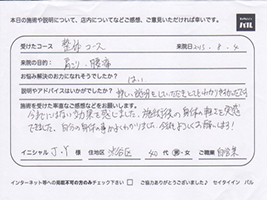 本日の施術や説明について、店内についてなどご感想、ご意見いただければ幸いです。
受けたコース 整体コース 来院日 2015.8.4
来院の目的: 肩こり、腰痛
お悩み解決のお力になれそうでしたか? はい
説明やアドバイスはいかがでしたか? 詳しい説明をしていただきとてもわかりやすかったです
施術を受けた率直なご感想などをお願いします。
今までにはない効果を感じました。施術後の身体の軽さを実感
できました。自分の身体の事がよくわかりました。今後もよろしくお願いします!
イニシャル J.Y 様 住地区 渋谷区 40代 男・女 ご職業 自営業
インターネット等への掲載不可の方のみチェック下さい □ ご協力ありがとうございました♪ セイタイイン パル